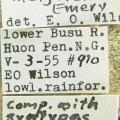 Emery
det. E. O. Wils
lower Busu R.
Huon Pen. N.G.
V-3-55 #910
EO Wilson
lowl. rainfor.
Comp. with